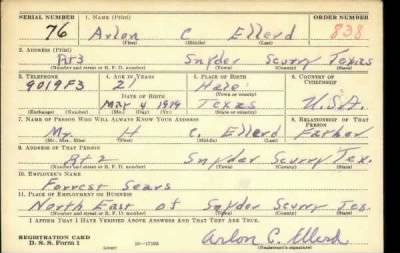 SERIAL NUMBER 1. NAME (Print) ORDER NUMBER
76 Arlon C Ellerd 838
(First) (Middle) (Last)
2. ADDRESS (Print)
Rt 3 Snyder Scurry Texas
(Number and street or R. F. D. number) (Town) (County) (State)
3. TELEPHONE 4. AGE IN YEARS 5. PLACE OF BIRTH 6. COUNTRY OF CITIZENSHIP
9019F3 21 Hale
DATE OF BIRTH (Town or county)
May 4 1919 Texas U.S.A.
(Exchange) (Number) (Mo.) (Day) (Yr.) (State or country)
7. NAME OF PERSON WHO WILL ALWAYS KNOW YOUR ADDRESS 8. RELATIONSHIP OF THAT PERSON
Mr. H C. Ellerd Father
(Mr., Mrs., Miss) (First) (Middle) (Last)
9. ADDRESS OF THAT PERSON
Rt 2 Snyder Scurry Tex.
(Number and street or R. F. D. number) (Town) (County) (State)
10. EMPLOYER'S NAME
Forrest Sears
11. PLACE OF EMPLOYMENT OR BUSINESS
North East of Snyder Scurry Tex.
(Number and street or R. F. D. number) (Town) (County) (State)
I AFFIRM THAT I HAVE VERIFIED ABOVE ANSWERS AND THAT THEY ARE TRUE.
REGISTRATION CARD
D. S. S. Form 1 Arlon C. Ellerd
(Registrant's signature)